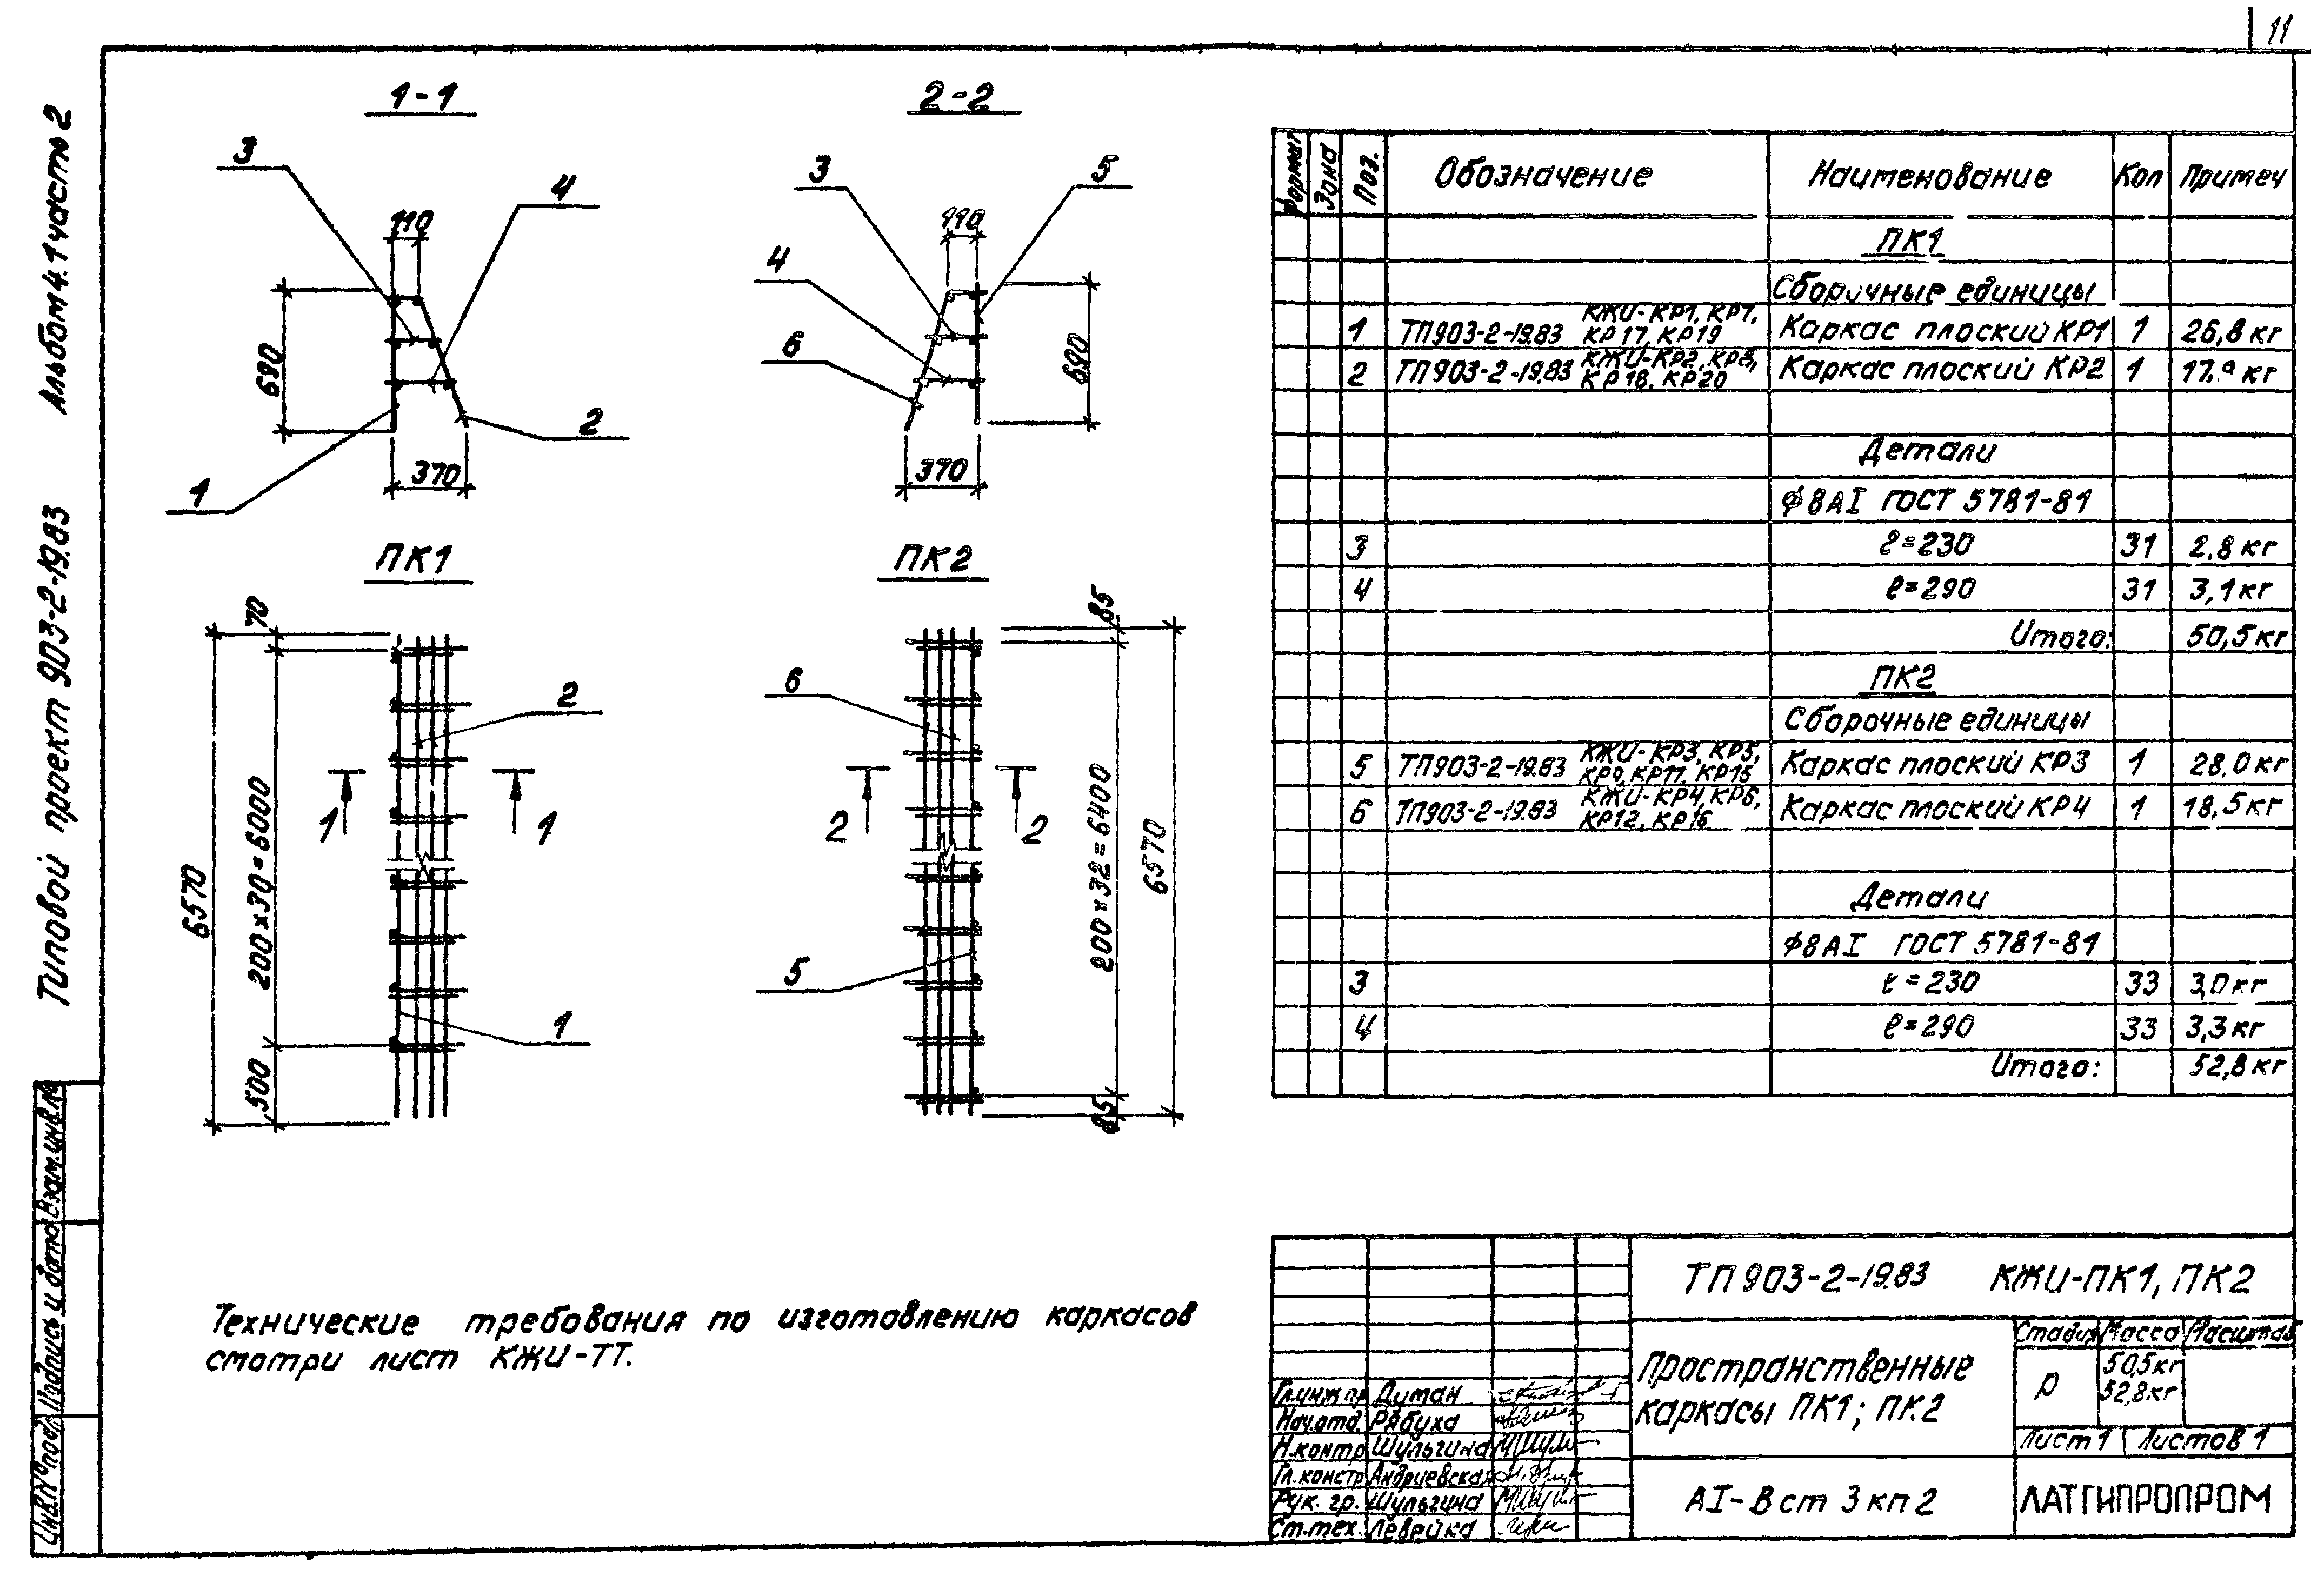 11
Альбом 4.1 часть 2
Типовой проект 903-2-19.83
Взам.инв.№
Подпись и дата
Инв.№ подл
1-1
3
4
110
690
1
2
370
2-2
3
5
110
4
6
690
370
ПК1
70
2
1 1
6570
200×30=6000
500
1
ПК2
85
6
2 2
200×32=6400
6570
5
85
Формат Зона Поз. Обозначение Наименование Кол Примеч
ПК1
Сборочные единицы
1 ТП903-2-19.83 КЖИ-КР1, КР7, КР17, КР19 Каркас плоский КР1 1 26,8 кг
2 ТП903-2-19.83 КЖИ-КР2, КР8, КР18, КР20 Каркас плоский КР2 1 кг
Детали
ϕ8АI ГОСТ 5781-81
3 ℓ=230 31 2,8 кг
4 ℓ=290 31 3,1 кг
Итого: 50,5 кг
ПК2
Сборочные единицы
5 ТП903-2-19.83 КЖИ-КР3, КР5, КР9, КР11, КР15 Каркас плоский КР3 1 28,0 кг
6 ТП903-2-19.83 КЖИ-КР4, КР6, КР12, КР16 Каркас плоский КР4 1 18,5 кг
Детали
ϕ8АI ГОСТ 5781-81
3 ℓ=230 33 3,0 кг
4 ℓ=290 33 3,3 кг
Итого: 52,8 кг
Технические требования по изготовлению каркасов
смотри лист КЖИ-ТТ.
ТП 903-2-19.83 КЖИ-ПК1, ПК2
Пространственные
каркасы ПК1; ПК2
Стадия Масса Масштаб
Р 50,5кг
52,8кг
Лист 1 Листов 1
АI-Вст 3 кп 2
ЛАТГИПРОПРОМ
Гл.инж.пр Думан
Нач.отд. Рябуха
Н.контр Шульгина
Гл.констр Андриевская
Рук. гр. Шульгина
Ст.тех. Левейка